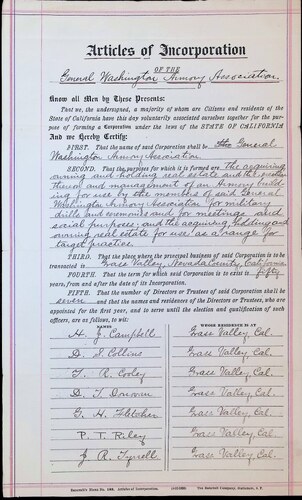 Articles of Incorporation
OF THE
General Washington Armory Association.
Know all Men by These Presents:
That we, the undersigned, a majority of whom are Citizens and residents of the
State of California have this day voluntarily associated ourselves together for the pur-
pose of forming a Corporation under the laws of the STATE OF CALIFORNIA
And we Hereby Certify:
FIRST. That the name of said Corporation shall be the General
Washington Armory Association.
SECOND. That the purposes for which it is formed are. The acquiring,
owning and holding real estate and the
and management of an Armory build-
ing for use by the members of said General
Washington Armory Association for military
drills and ceremonies and for meetings and
social purposes; and the acquiring, holding and
owning real estate for use as a range for
target practice.
THIRD. That the place where the principal business of said Corporation is to be
transacted is Grass Valley, Nevada County, California
FOURTH. That the term for which said Corporation is to exist is fifty
years, from and after the date of its Incorporation.
FIFTH. That the number of Directors or Trustees of said Corporation shall be
seven and that the names and residences of the Directors or Trustees, who are
appointed for the first year, and to serve until the election and qualification of such
officers, are as follows, to wit:
NAMES WHOSE RESIDENCE IS AT
H. J. Campbell Grass Valley, Cal.
D. S. Collins Grass Valley, Cal.
T. R. Corley Grass Valley, Cal.
D. T. Donovan Grass Valley, Cal.
G. H. Fletcher Grass Valley, Cal.
P. T. Riley Grass Valley, Cal.
J. R. Tyrrell Grass Valley, Cal.
Articles of Incorporation.